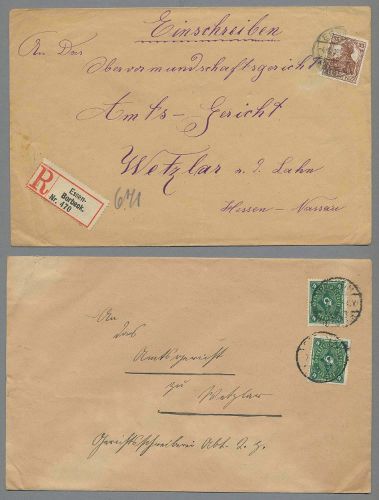 Einschreiben
An Das
Obervormundschaftsgericht
Amts-Gericht
Wetzlar a. d. Lahn
Hessen-Nassau
R
Essen-
Borbeck.
Nr. 470
An
das
Amtsgericht
zu
Wetzlar
Gerichtsschreiberei Abt.